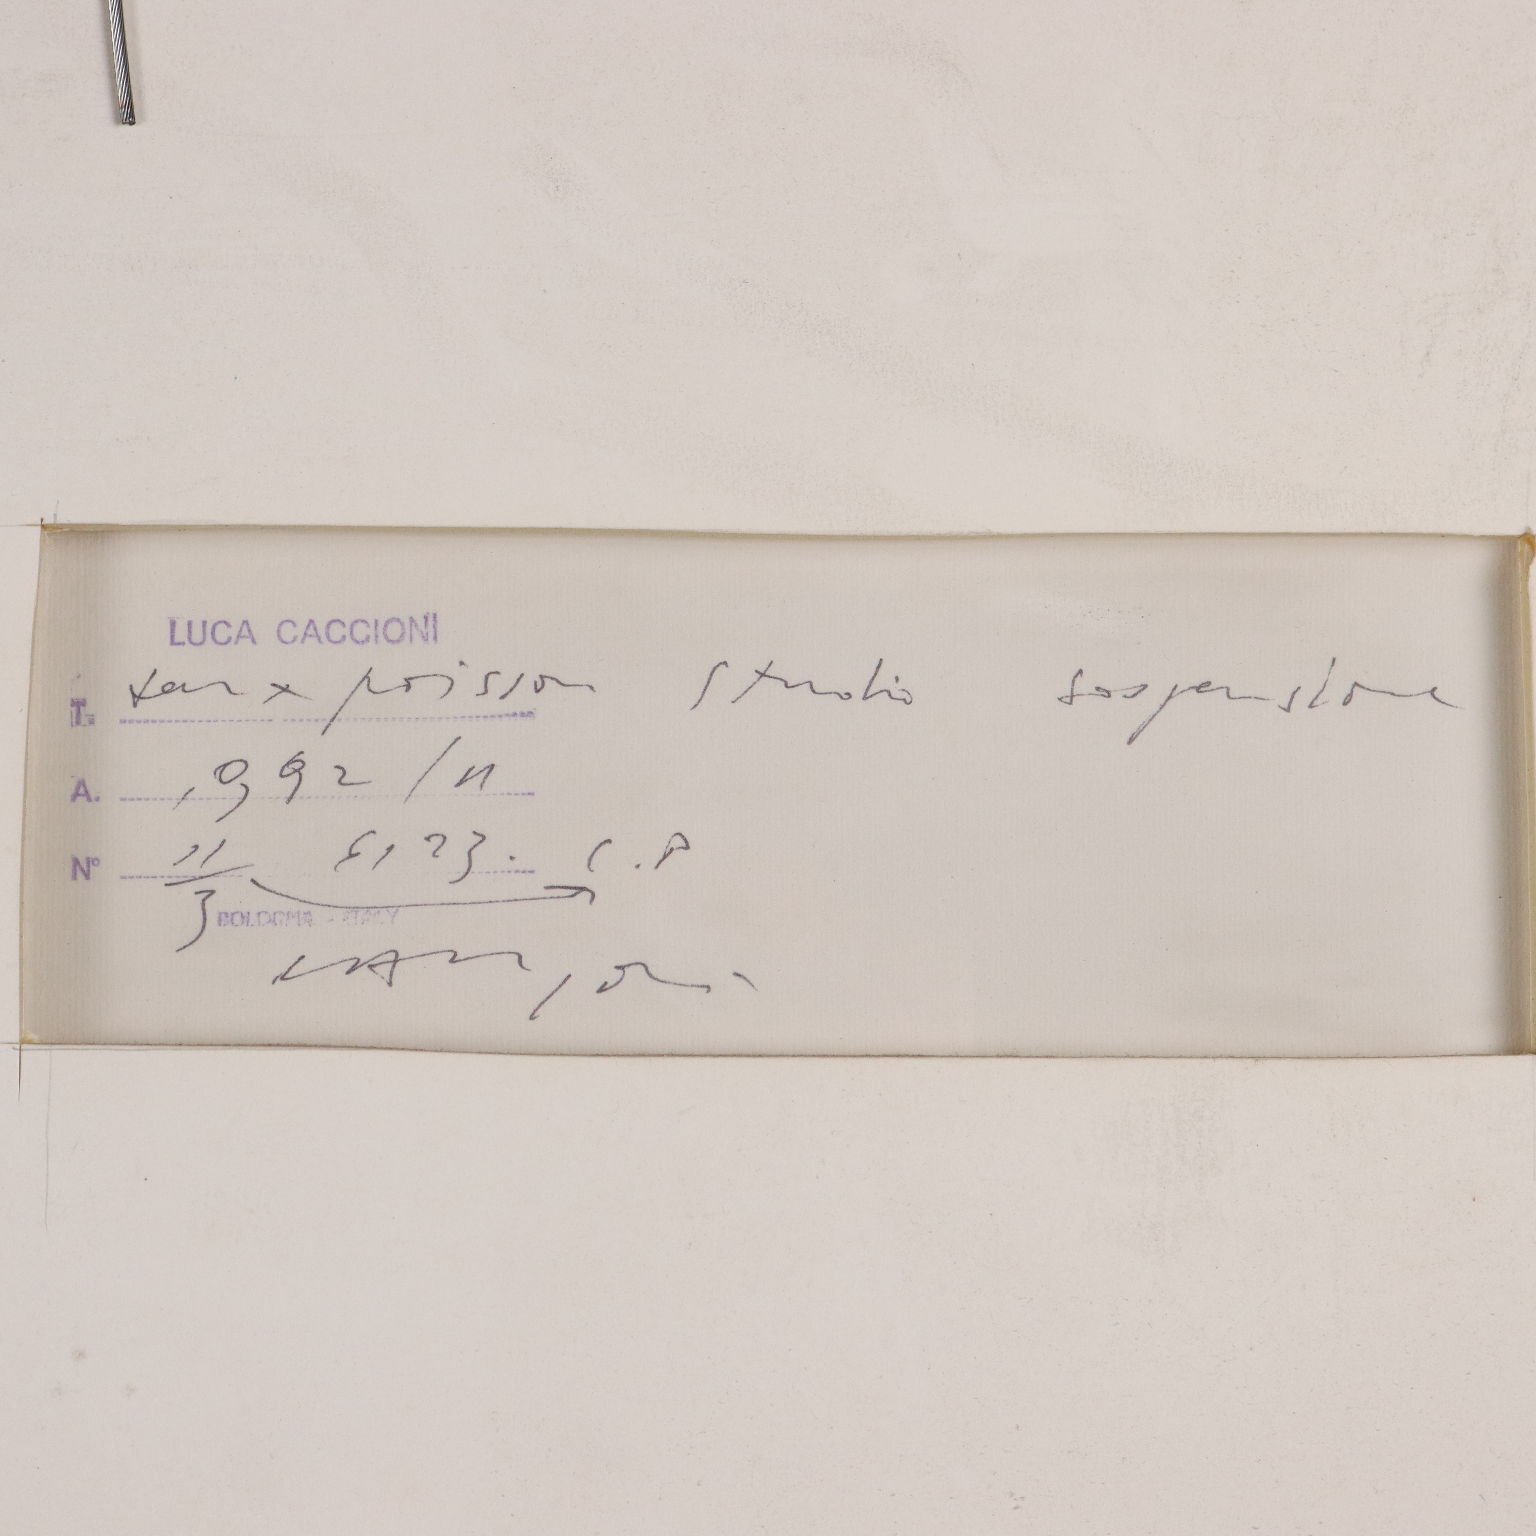 LUCA CACCIONI
T. poisson studio sospensione
A. 1992/11
N° 11/3 5123. C.P
BOLOGNA - ITALY